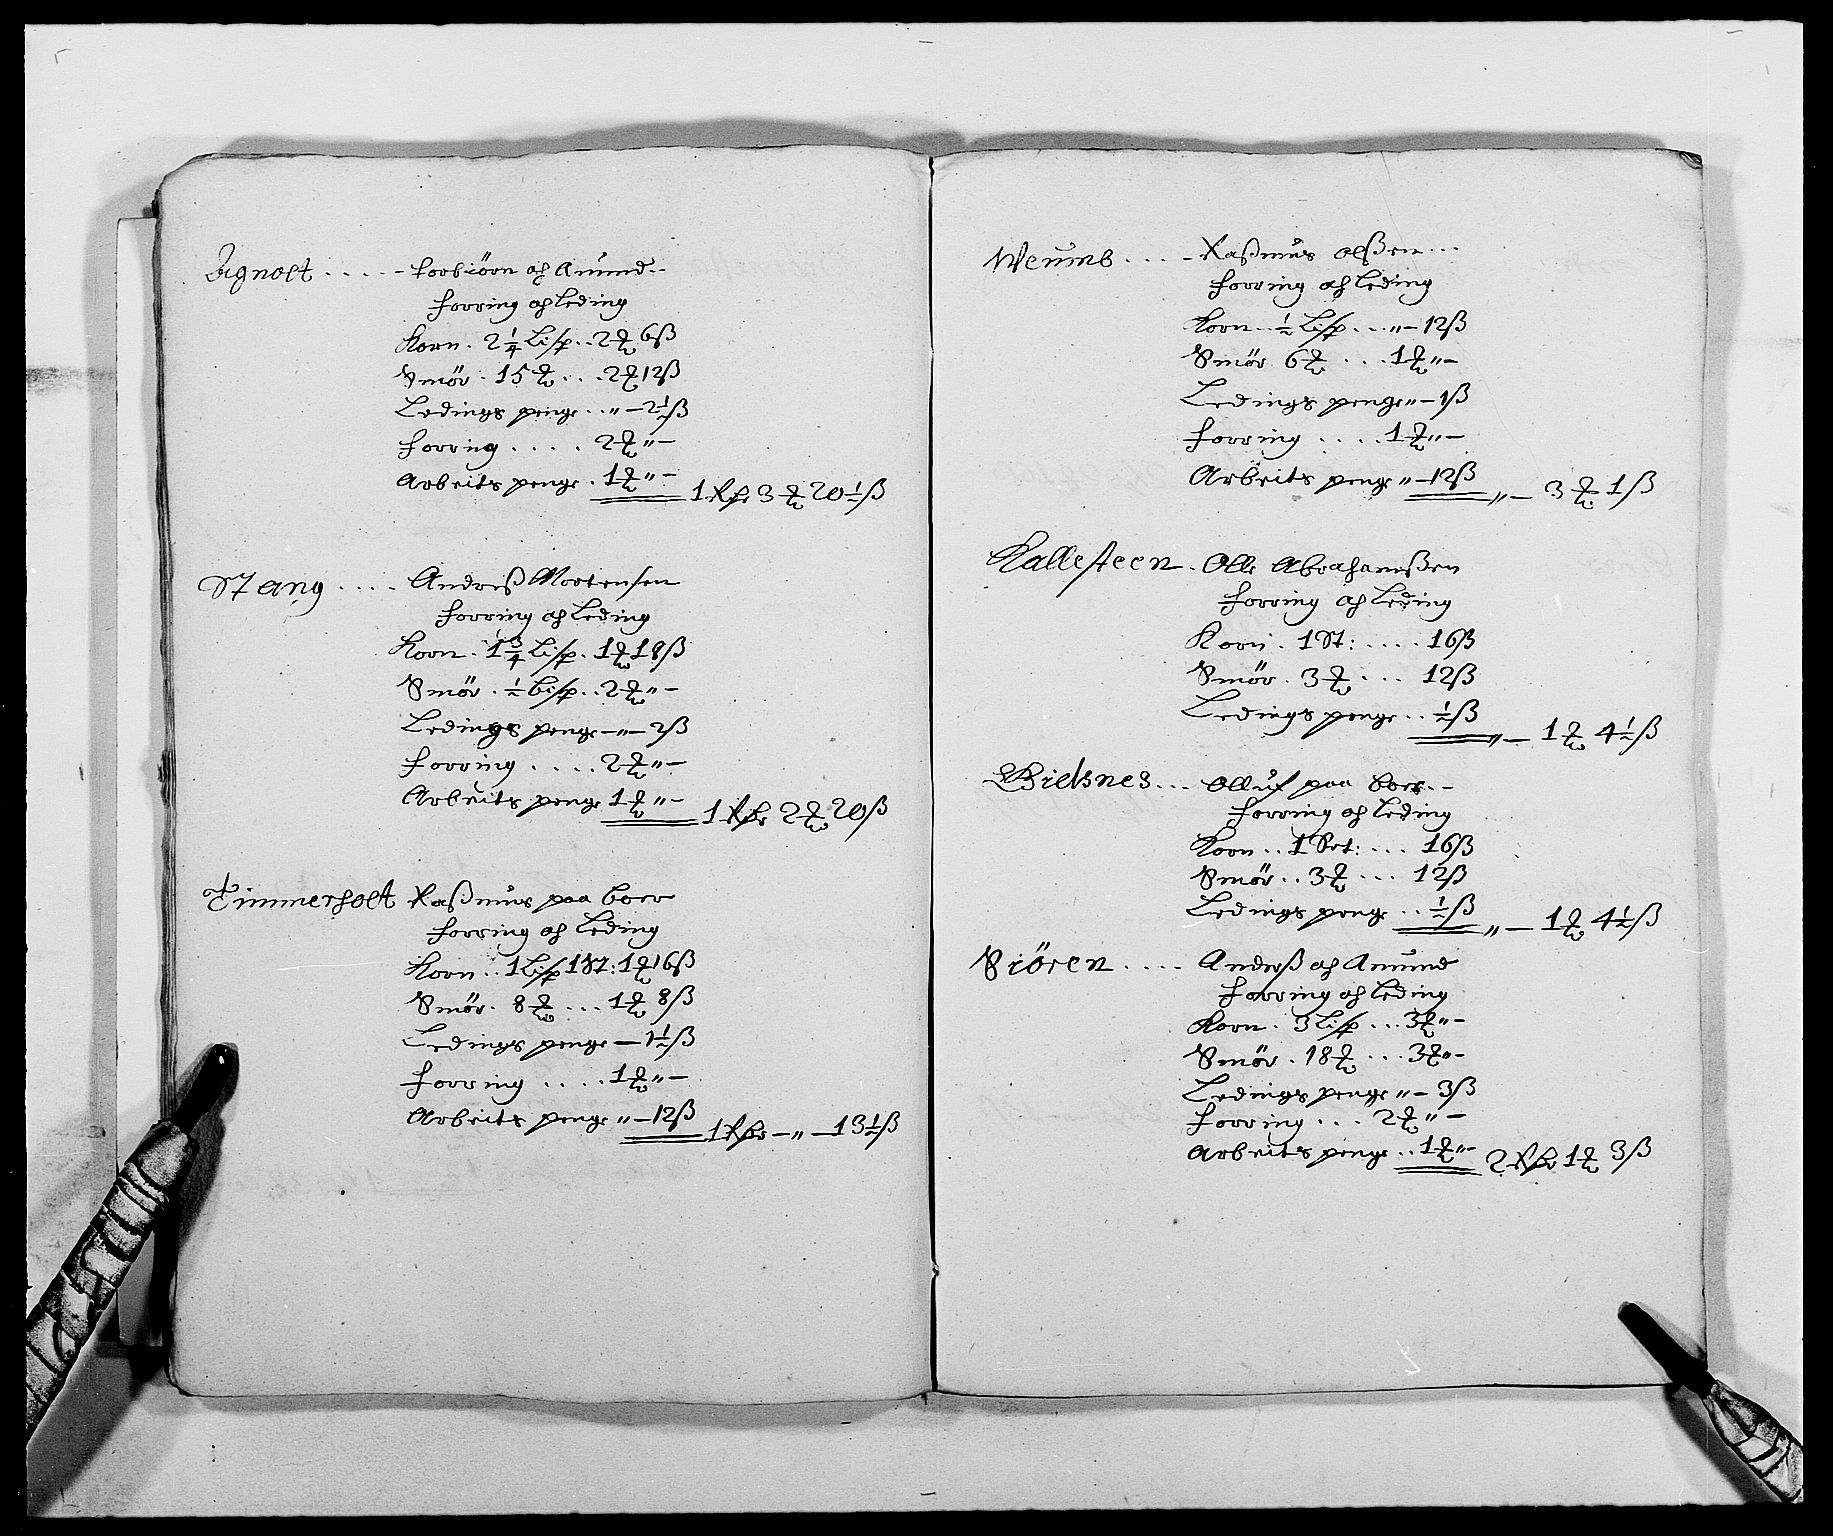 Agnolt ..... Torbiörn oc Amund..
Forring oc Leding
Korn . 2 1/4 Lisp .. 2 ℔ 6ß
Smör . 15 ℔ ... 2 ℔ 12ß
Ledings penge .. " — 2 1/2 ß
Forring ..... 2 ℔ " —
Arbeits penge . 1 ℔ " — 1 Rdr 3 ℔ 20 1/2 ß
Stang .... Andreß Mortensen
Forring oc Leding
Korn . 1 3/4 Lisp . 1 ℔ 18ß
Smör . 1/2 Lisp .. 2 ℔ " —
Ledings penge — " — 2ß
Forring .... 2 ℔ " —
Arbeits penge 1 ℔ " — 1 Rdr 2 ℔ 20ß
Timmerholt Raßmus paa boer
Forring oc Leding
Korn .. 1 Lisp 1 St: 1 ℔ 16ß
Smör . 8 ℔ ... 1 ℔ 8ß
Ledings penge — 1 1/2 ß
Forring .... 1 ℔ " —
Arbeits penge " — 12ß 1 Rdr — " — 13 1/2 ß
Weumb .... Raßmus Olßen ...
Forring oc Leding
Korn .. 1/2 Lisp ... " — 12ß
Smör 6 ℔ ... 1 ℔ " —
Ledings penge " — 1ß
Forring .... 1 ℔ " —
Arbeits penge " — 12ß " — 3 ℔ 1ß
Kallesteen . Olle Abrahamßen
Forring oc Leding
Korn . 1 St: .... 16ß
Smör . 3 ℔ ... 12ß
Ledings penge .. 1/2 ß " — 1 ℔ 4 1/2 ß
Bielsnes ... Olluf paa boer..
Forring oc Leding
Korn .. 1 Set: ... 16ß
Smör .. 3 ℔ ... 12ß
Ledings penge .. 1/2 ß " — 1 ℔ 4 1/2 ß
Siören .... Anderß oc Amund
Forring oc Leding
Korn . 3 Lisp ... 3 ℔ " —
Smör . 18 ℔ ... 3 ℔ " —
Ledings penge " — 3ß
Forring ... 2 ℔ " —
Arbeits penge .. 1 ℔ " — 2 Rdr 1 ℔ 3ß